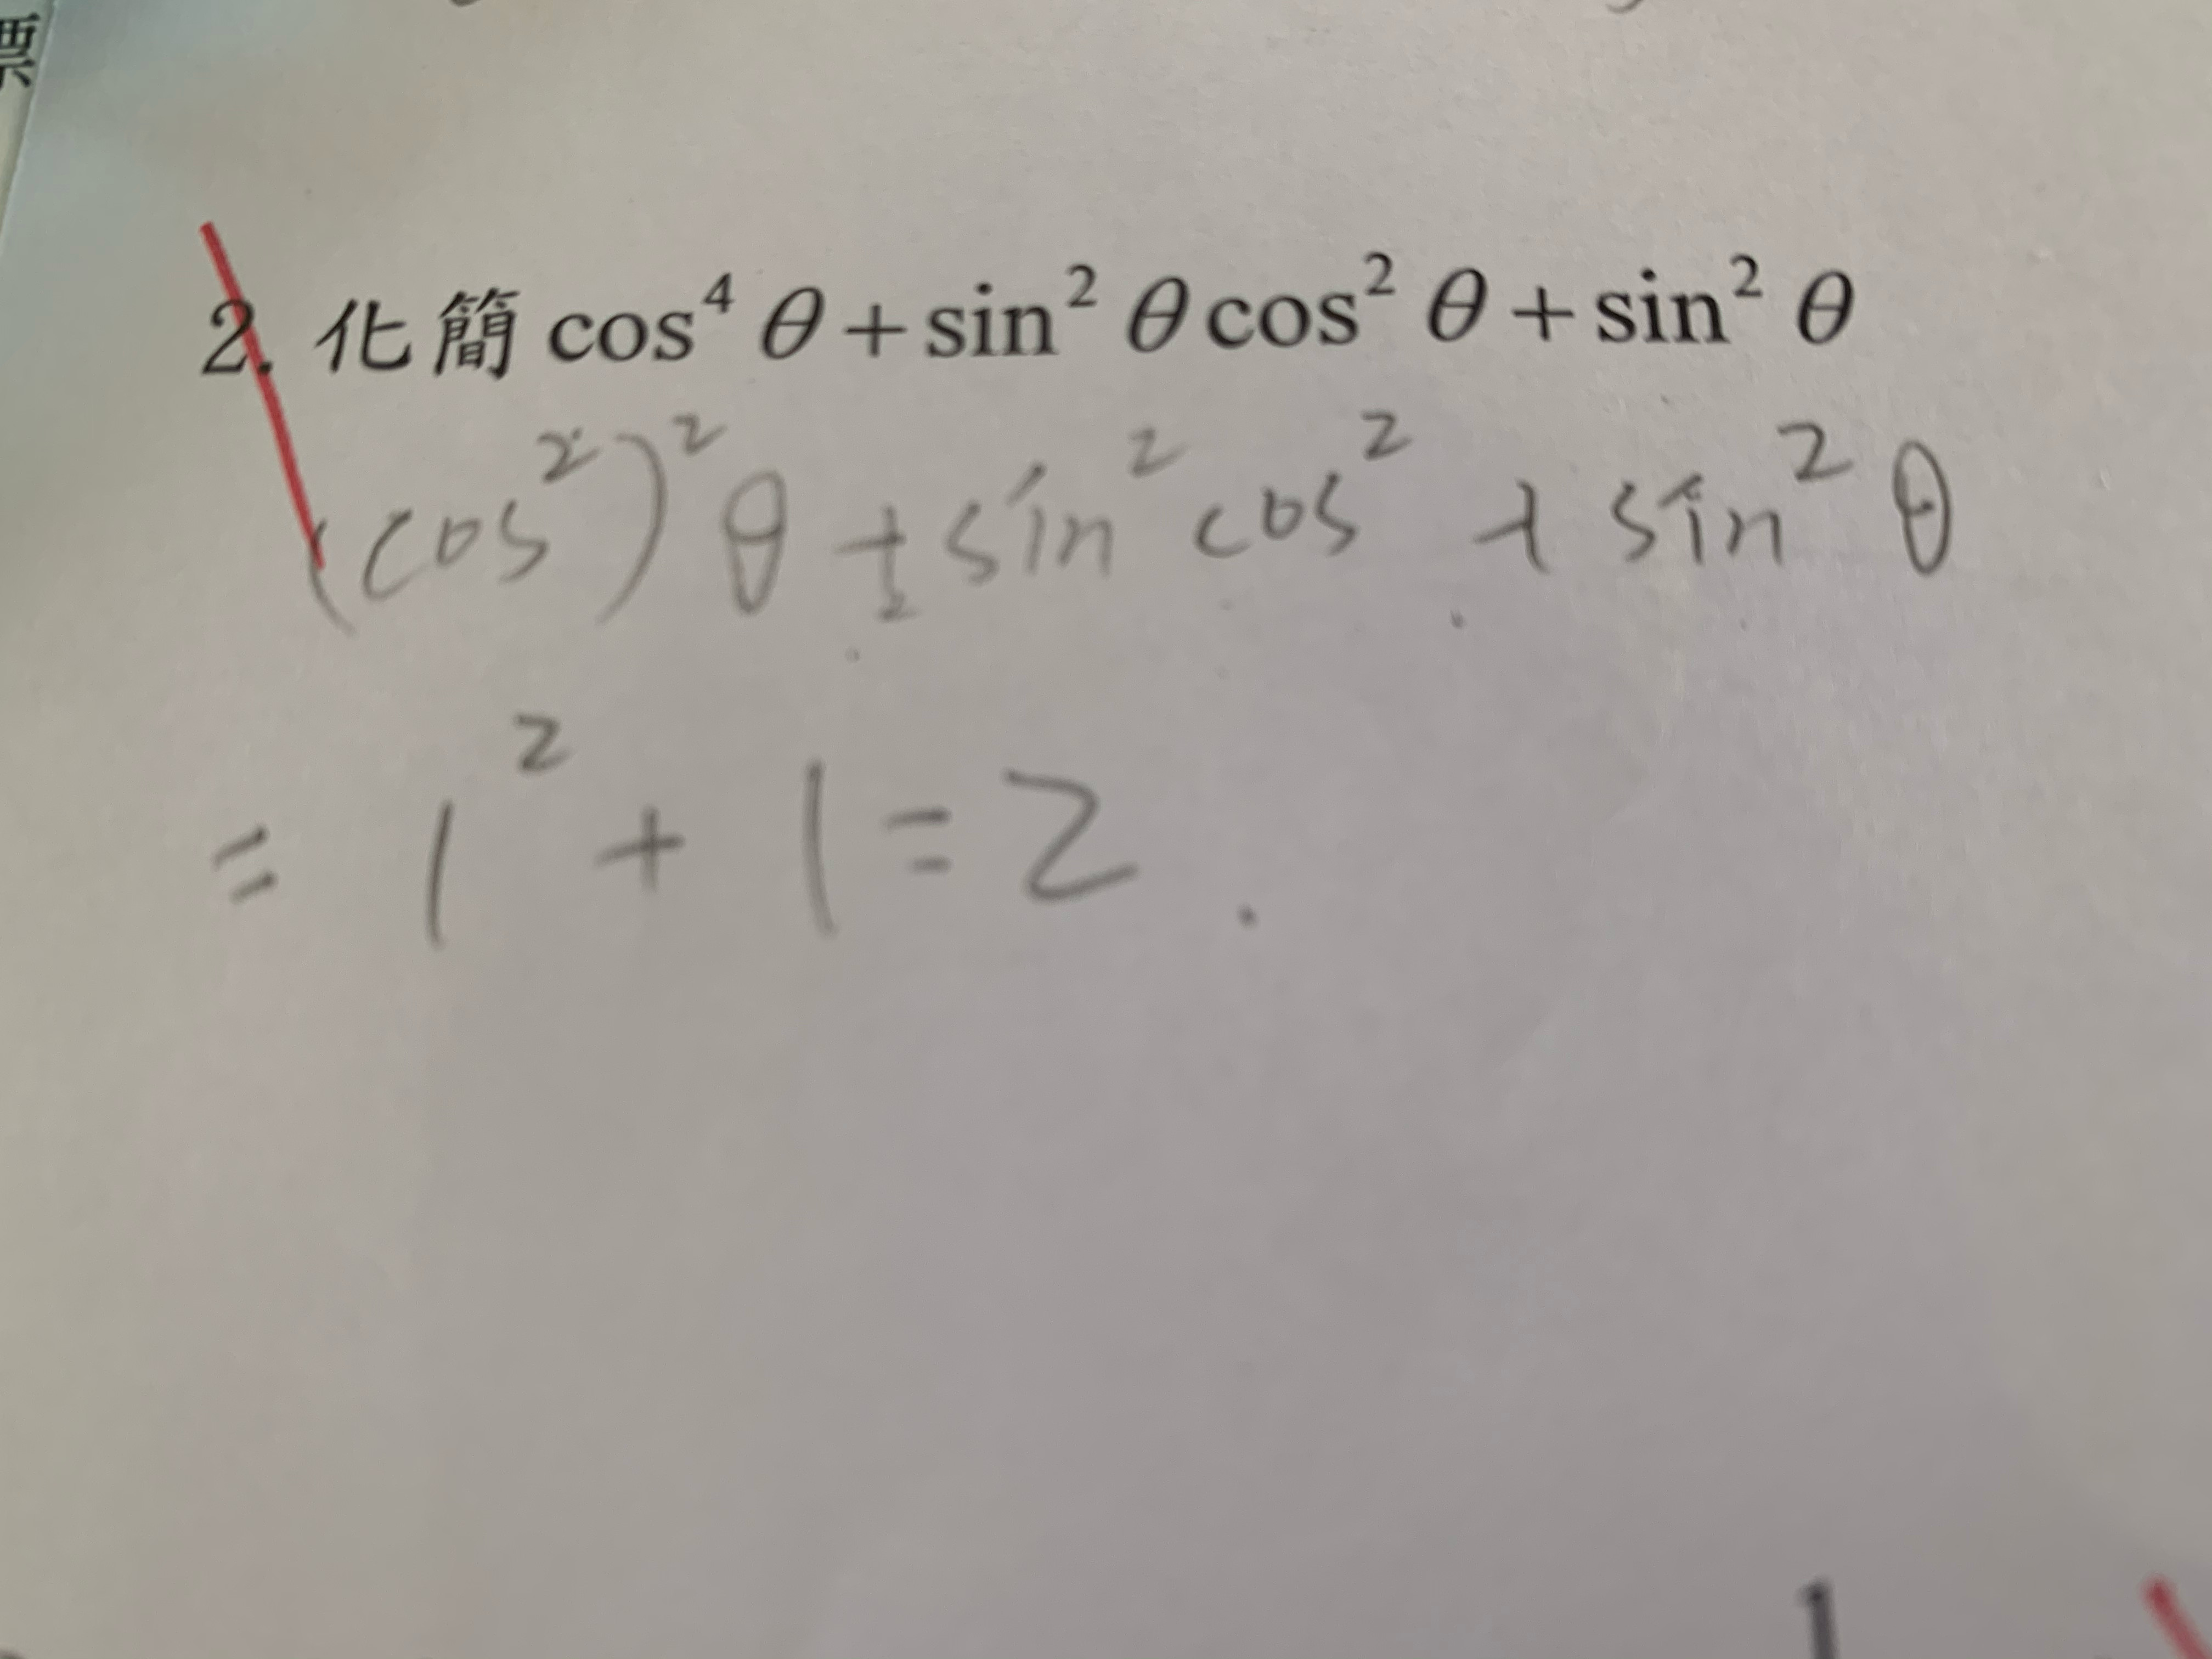 票
2. 化簡 cos⁴ θ + sin² θ cos² θ + sin² θ
(cos²)² θ + sin² cos² + sin² θ
= 1² + 1 = 2 .